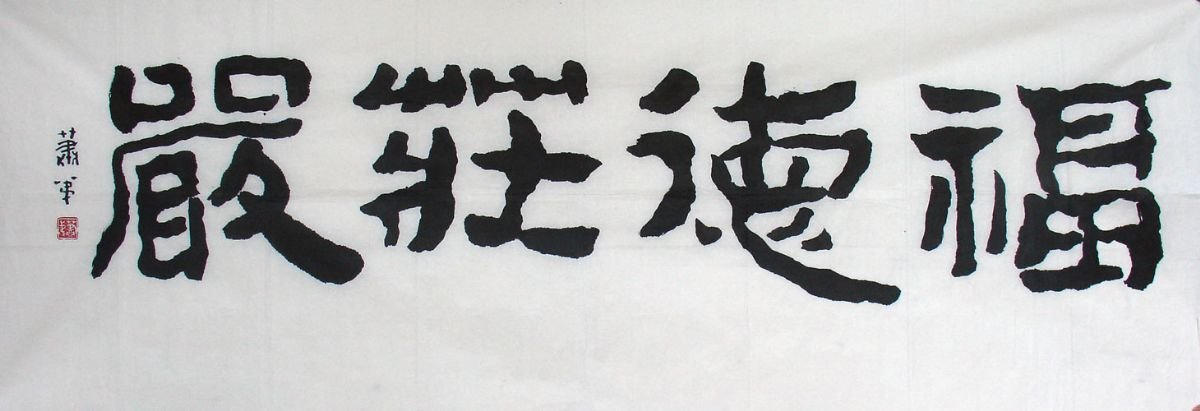 福德莊嚴
蕭軍